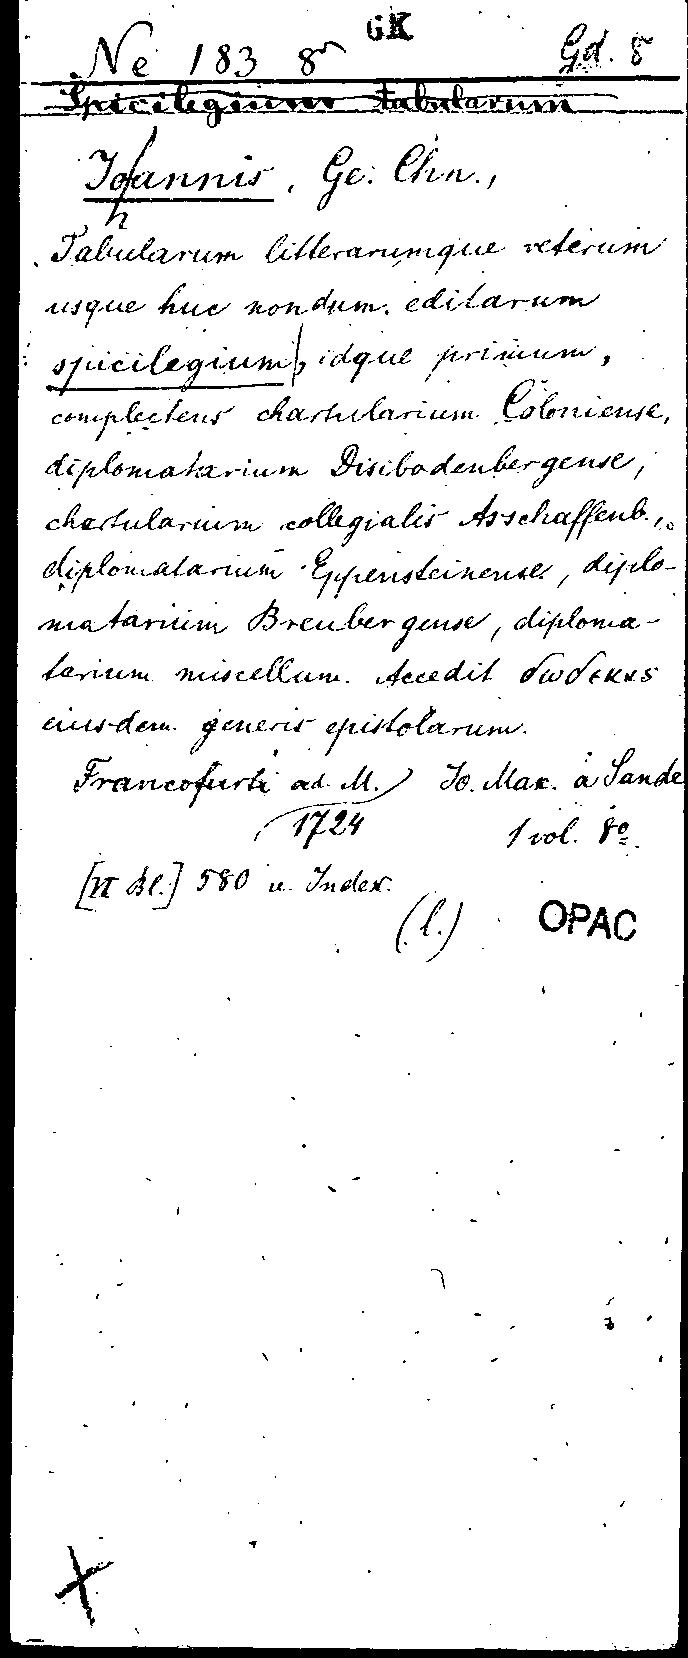 GK
Ne 183 8° Gd. 5
Spicilegium tabularum
Joannis, Ge. Chn.,
h
Tabularum litterarumque veterum
usque huc nondum editarum
spicilegium, idque primum,
complectens chartularium Coloniense,
diplomatarium Disibodenbergense,
chartularium collegialis Asschaffenb.,
diplomatarium Eppensteinense, diplo-
matarium Breubergense, diploma-
tarium miscellum. Accedit δωδεκας
eiusdem generis epistolarum.
Francofurti ad M. Jo. Max. à Sande
1724 1 vol. 8º.
[VI Bl.] 580 u. Index.
(l.) OPAC